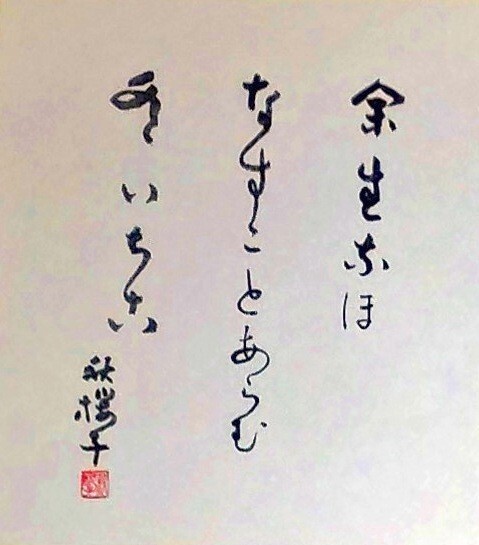 余生なほ
なすことあらむ
冬いちこ
秋櫻子